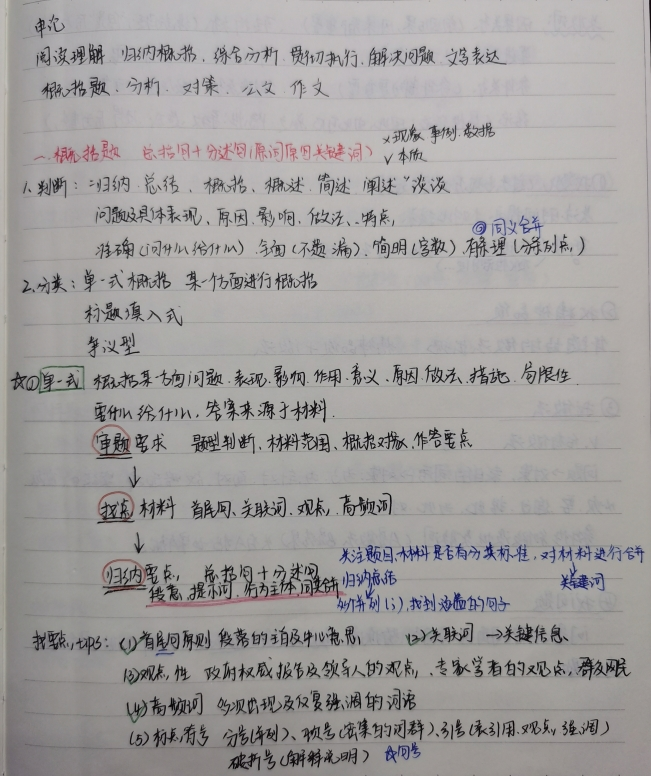 申论
阅读理解 归纳概括、综合分析、贯彻执行、解决问题、文字表达
概括题、分析、对策、公文、作文
一、概括题 总括句+分述句(原词原句关键词)
×现象、事例、数据
✓本质
1.判断:"归纳、总结、概括、概述、简述、阐述"谈谈
问题及具体表现、原因、影响、做法、特点
准确(问什么给什么)、全面(不遗漏)、简明(字数)、有条理(分条列点)
◎同义合并
2.分类:单一式概括 某一方面进行概括
标题填入式
争议型
☆①单一式 概括某方面问题、表现、影响、作用、意义、原因、做法、措施、局限性
要什么给什么,答案来源于材料
审题要求 题型判断、材料范围、概括对象、作答要点
↓
找点材料 首尾句、关联词、观点、高频词
↓
归纳要点, 总括句+分述句
段意、提示词、行为主体、同类合并
关注题目、材料是否有分类标准,对材料进行合并
归纳总括
关键词
多个并列(;),找到涵盖的句子
找要点,tips:(1)首尾句原则 段落的主旨及中心意思 (2)关联词→关键信息
(3)观点性 政府权威报告及领导人的观点、专家学者的观点,群众网民
(4)高频词 多次出现及反复强调的词语
(5)标点符号 分号(并列)、顿号(密集的词群)、引号(表引用、观点,强调)
破折号(解释说明) ☆问号